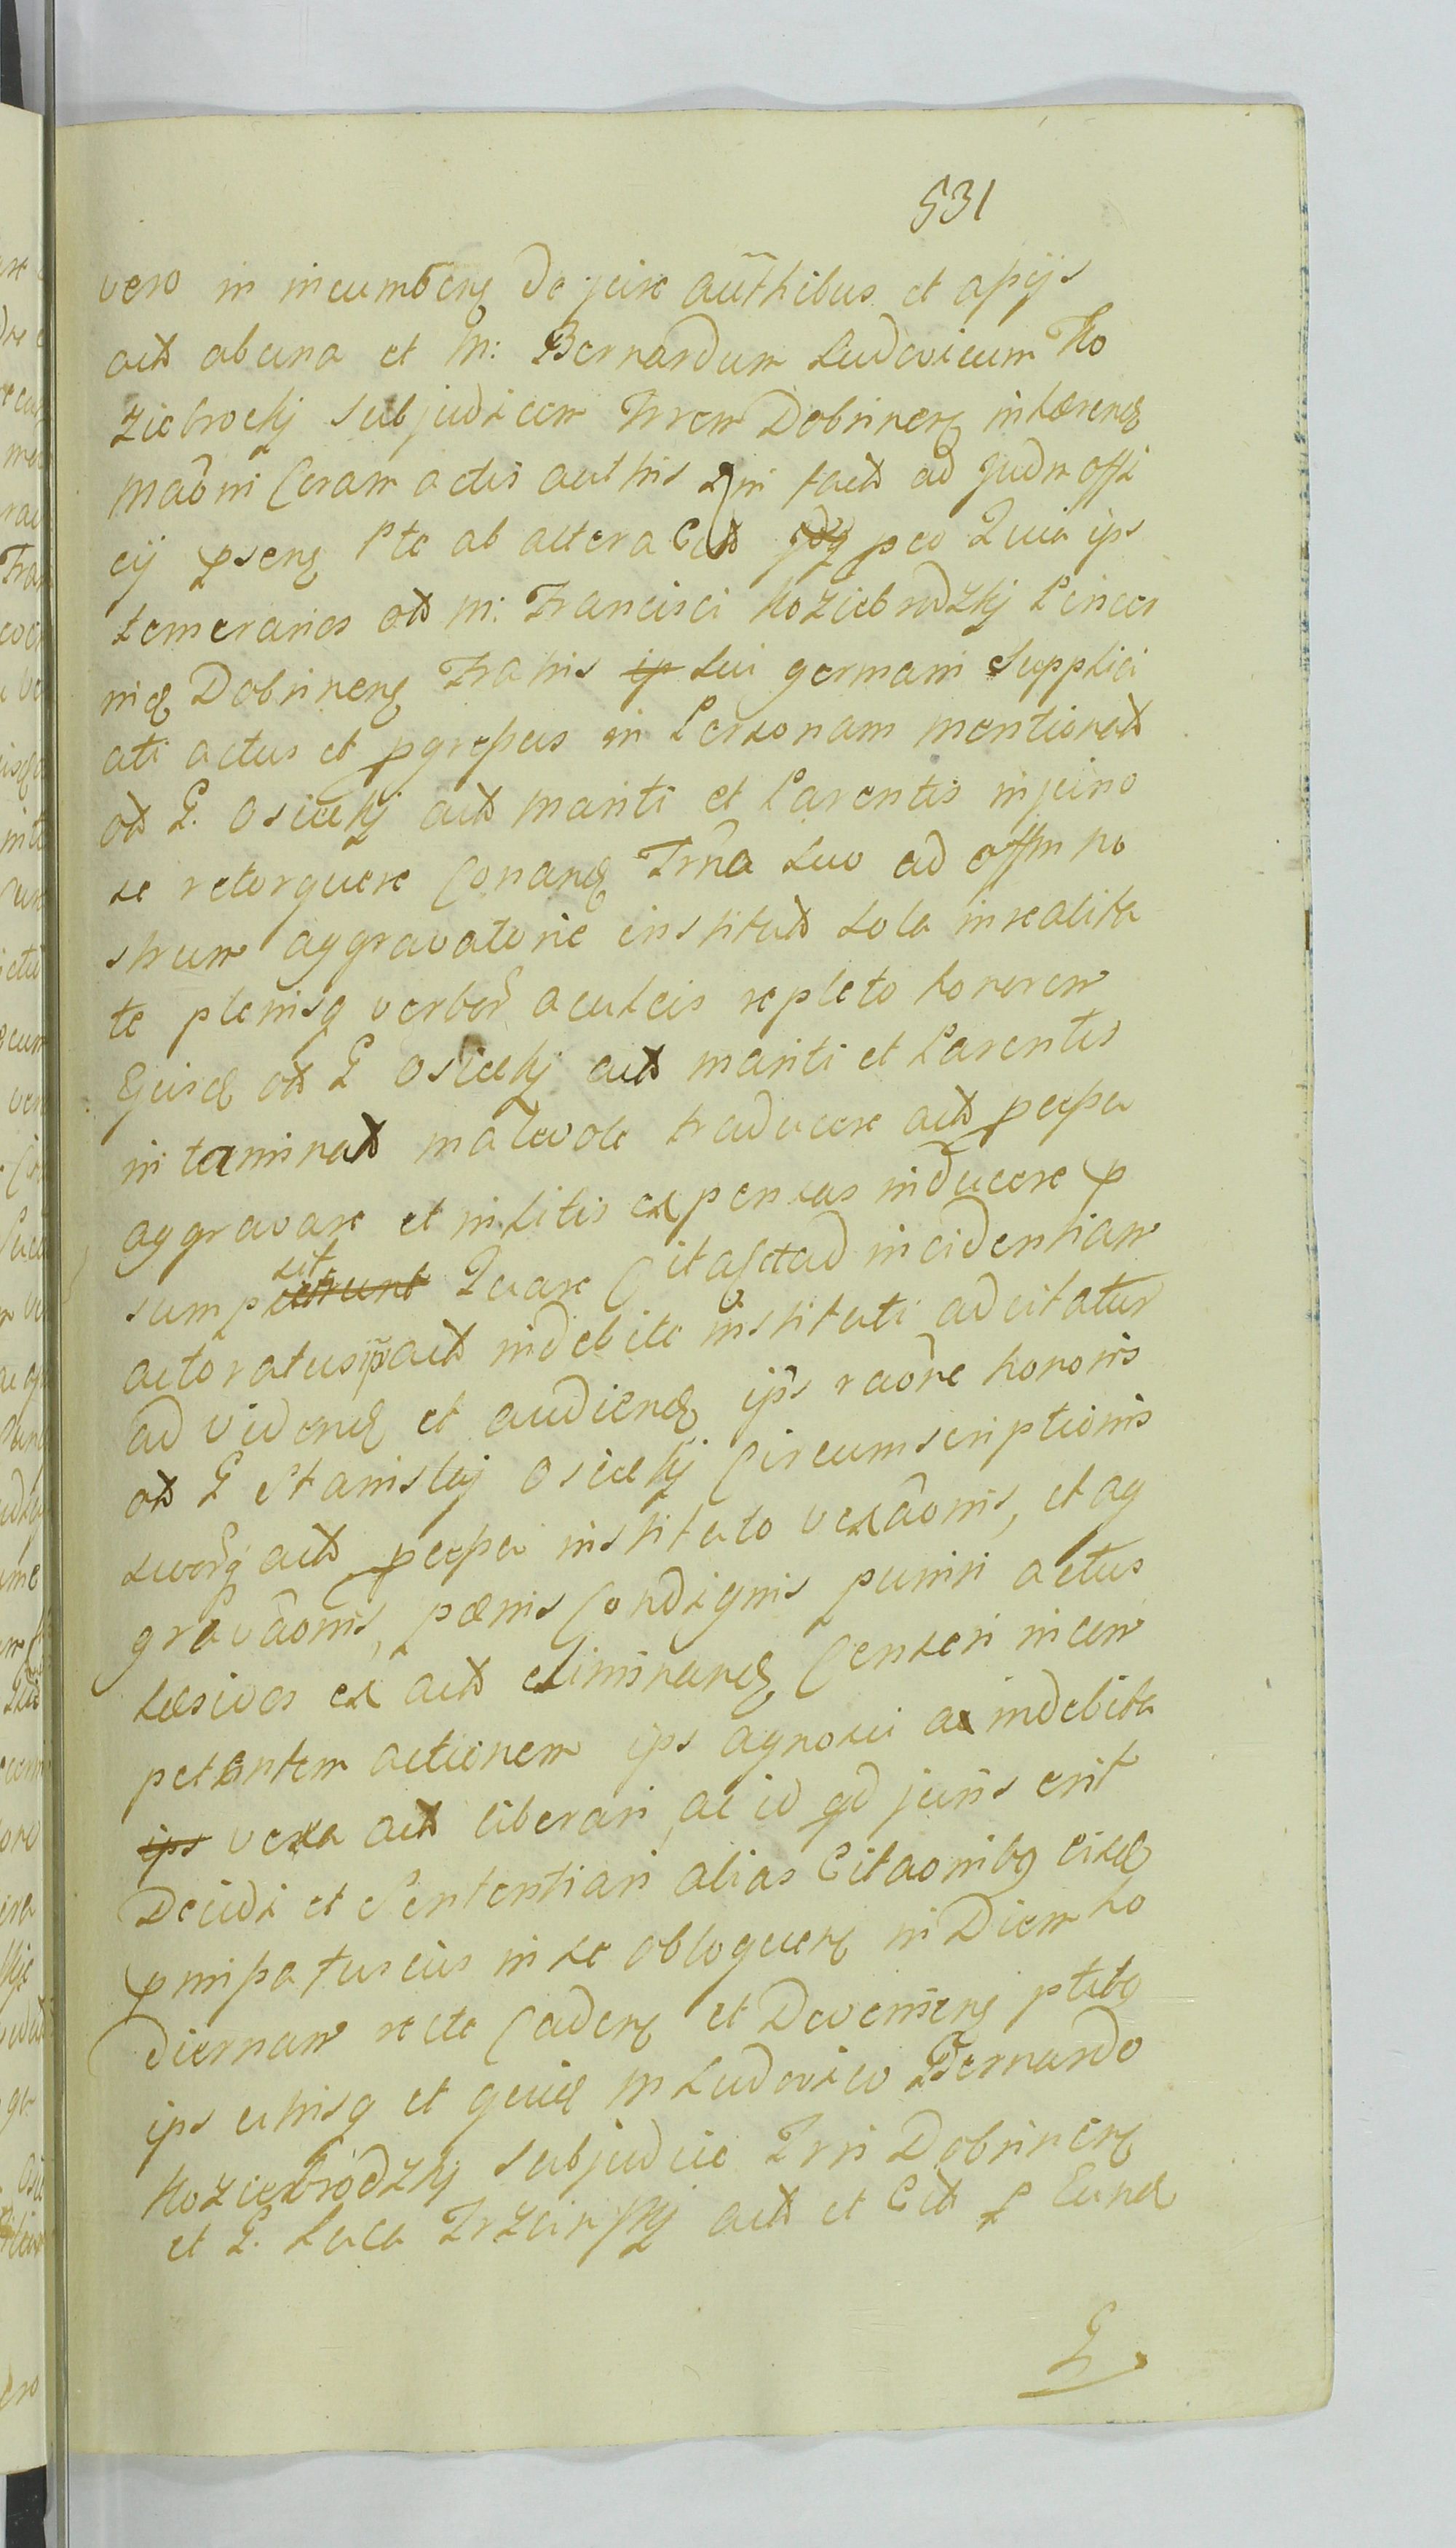 531
vero in incumben de jure authibus et apijs
act ab una et M: Bernardum Ludovicum Ko
ziebrockj Subjudicem Trrem Dobrinen inhæren
Maōni Coram actis authis in fact ad Judm offi
cij psen Pte ab altera Cit peo Quia ips
temerarios ot M: Francisci Koziebrodzkj Pincer
nið Dobrinen Fratris sui germani Supplici
ati actus et pgressus in Personam mentionat
ot G. Osieckj act Mariti et Parentis injurio
se retorquere Conand Trña suo ad offm no
strum aggravatorie institut sola in realita
te plenisq verbor aculeis repleto honorem
Ejusd ot G Osieckj act mariti et Parentis
interminat malevole traducere act peepea
aggravare et in litis expensas inducere p
sumpsit Quare Citat ad incidentiam
actoratus p act indebite instituti adcitatur
ad viden et audiend ips raõne honoris
ot G Stanislaj Osieckj Circumscriptionis
suorq act peepea instituto vexaõnis, et ag
gravaõnis, pænis Condignis puniri actus
læsivos ex act eliminand Censeri incom
petentem actionem ips agnosci ac indebita
ips vexa act liberari, ac id qd juris erit
Decidi et Sententiari alias Citaonibq eisd
p mipa fusius in se obloquen in Diem ho
diernam recte Caden et Devenien ptibq
ips utrisq et quid M Ludovico Bernardo
Koziebródzkj Subjudice Trri Dobrinen
et G. Luca Trzcinskj act et Cit p Eund
G